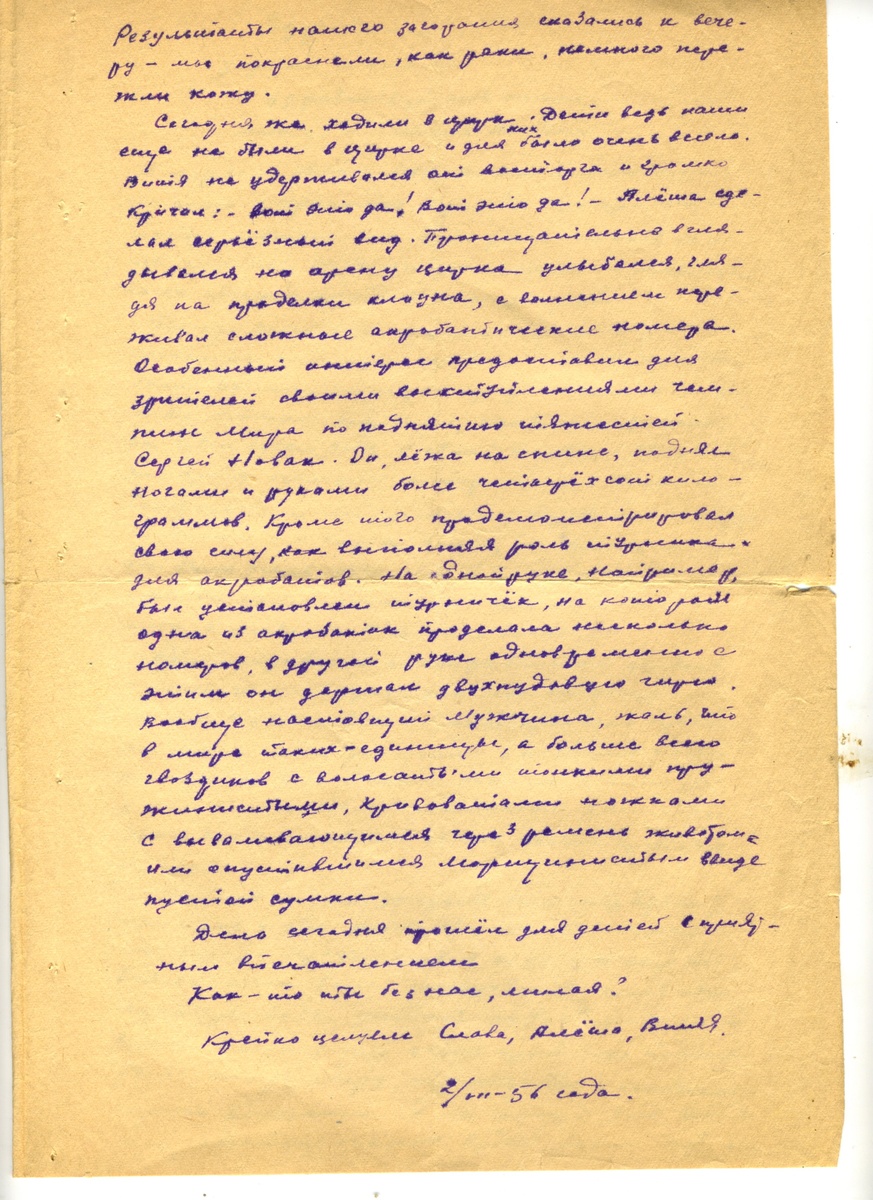 Результаты нашего загорания сказались к вече-
ру – мы покраснели, как раки, немного пере-
жгли кожу.
Сегодня же ходили в цирк. Дети ведь наши
еще не были в цирке и для них было очень весело.
Витя не удерживался от восторга и громко
кричал: – Вот это да! Вот это да! – Алёша сде-
лал серьёзный вид. Проницательно вгля-
дывался на арену цирка улыбался, гля-
дя на проделки клоуна, с волнением пере-
живал сложные акробатические номера.
Особенный интерес предоставил для
зрителей своими выступлениями чем-
пион Мира по поднятию тяжестей
Сергей Новак. Он, лёжа на спине, поднял
ногами и руками более четырёхсот кило-
граммов. Кроме того продемонстрировал
свою силу, как выполняя роль турника
для акробатов. На одной руке, например,
был установлен турничёк, на котором
одна из акробаток проделала несколько
номеров, в другой руке одновременно с
этим он держал двухпудовую гирю.
Вообще настоящий мужчина, жаль, что
в мире таких – единицы, а больше всего
гвоздиков с волосатыми тонкими пру-
жинистыми, кривоватыми ножками
с вываливающимся через ремень животом
или опустившимся морщинистым ввиде
пустой сумки.
День сегодня прошёл для детей с прият-
ным впечатлением
Как-то ты без нас, милая?
Крепко целуем Слава, Алёша, Витя.
2/VII–56 года.